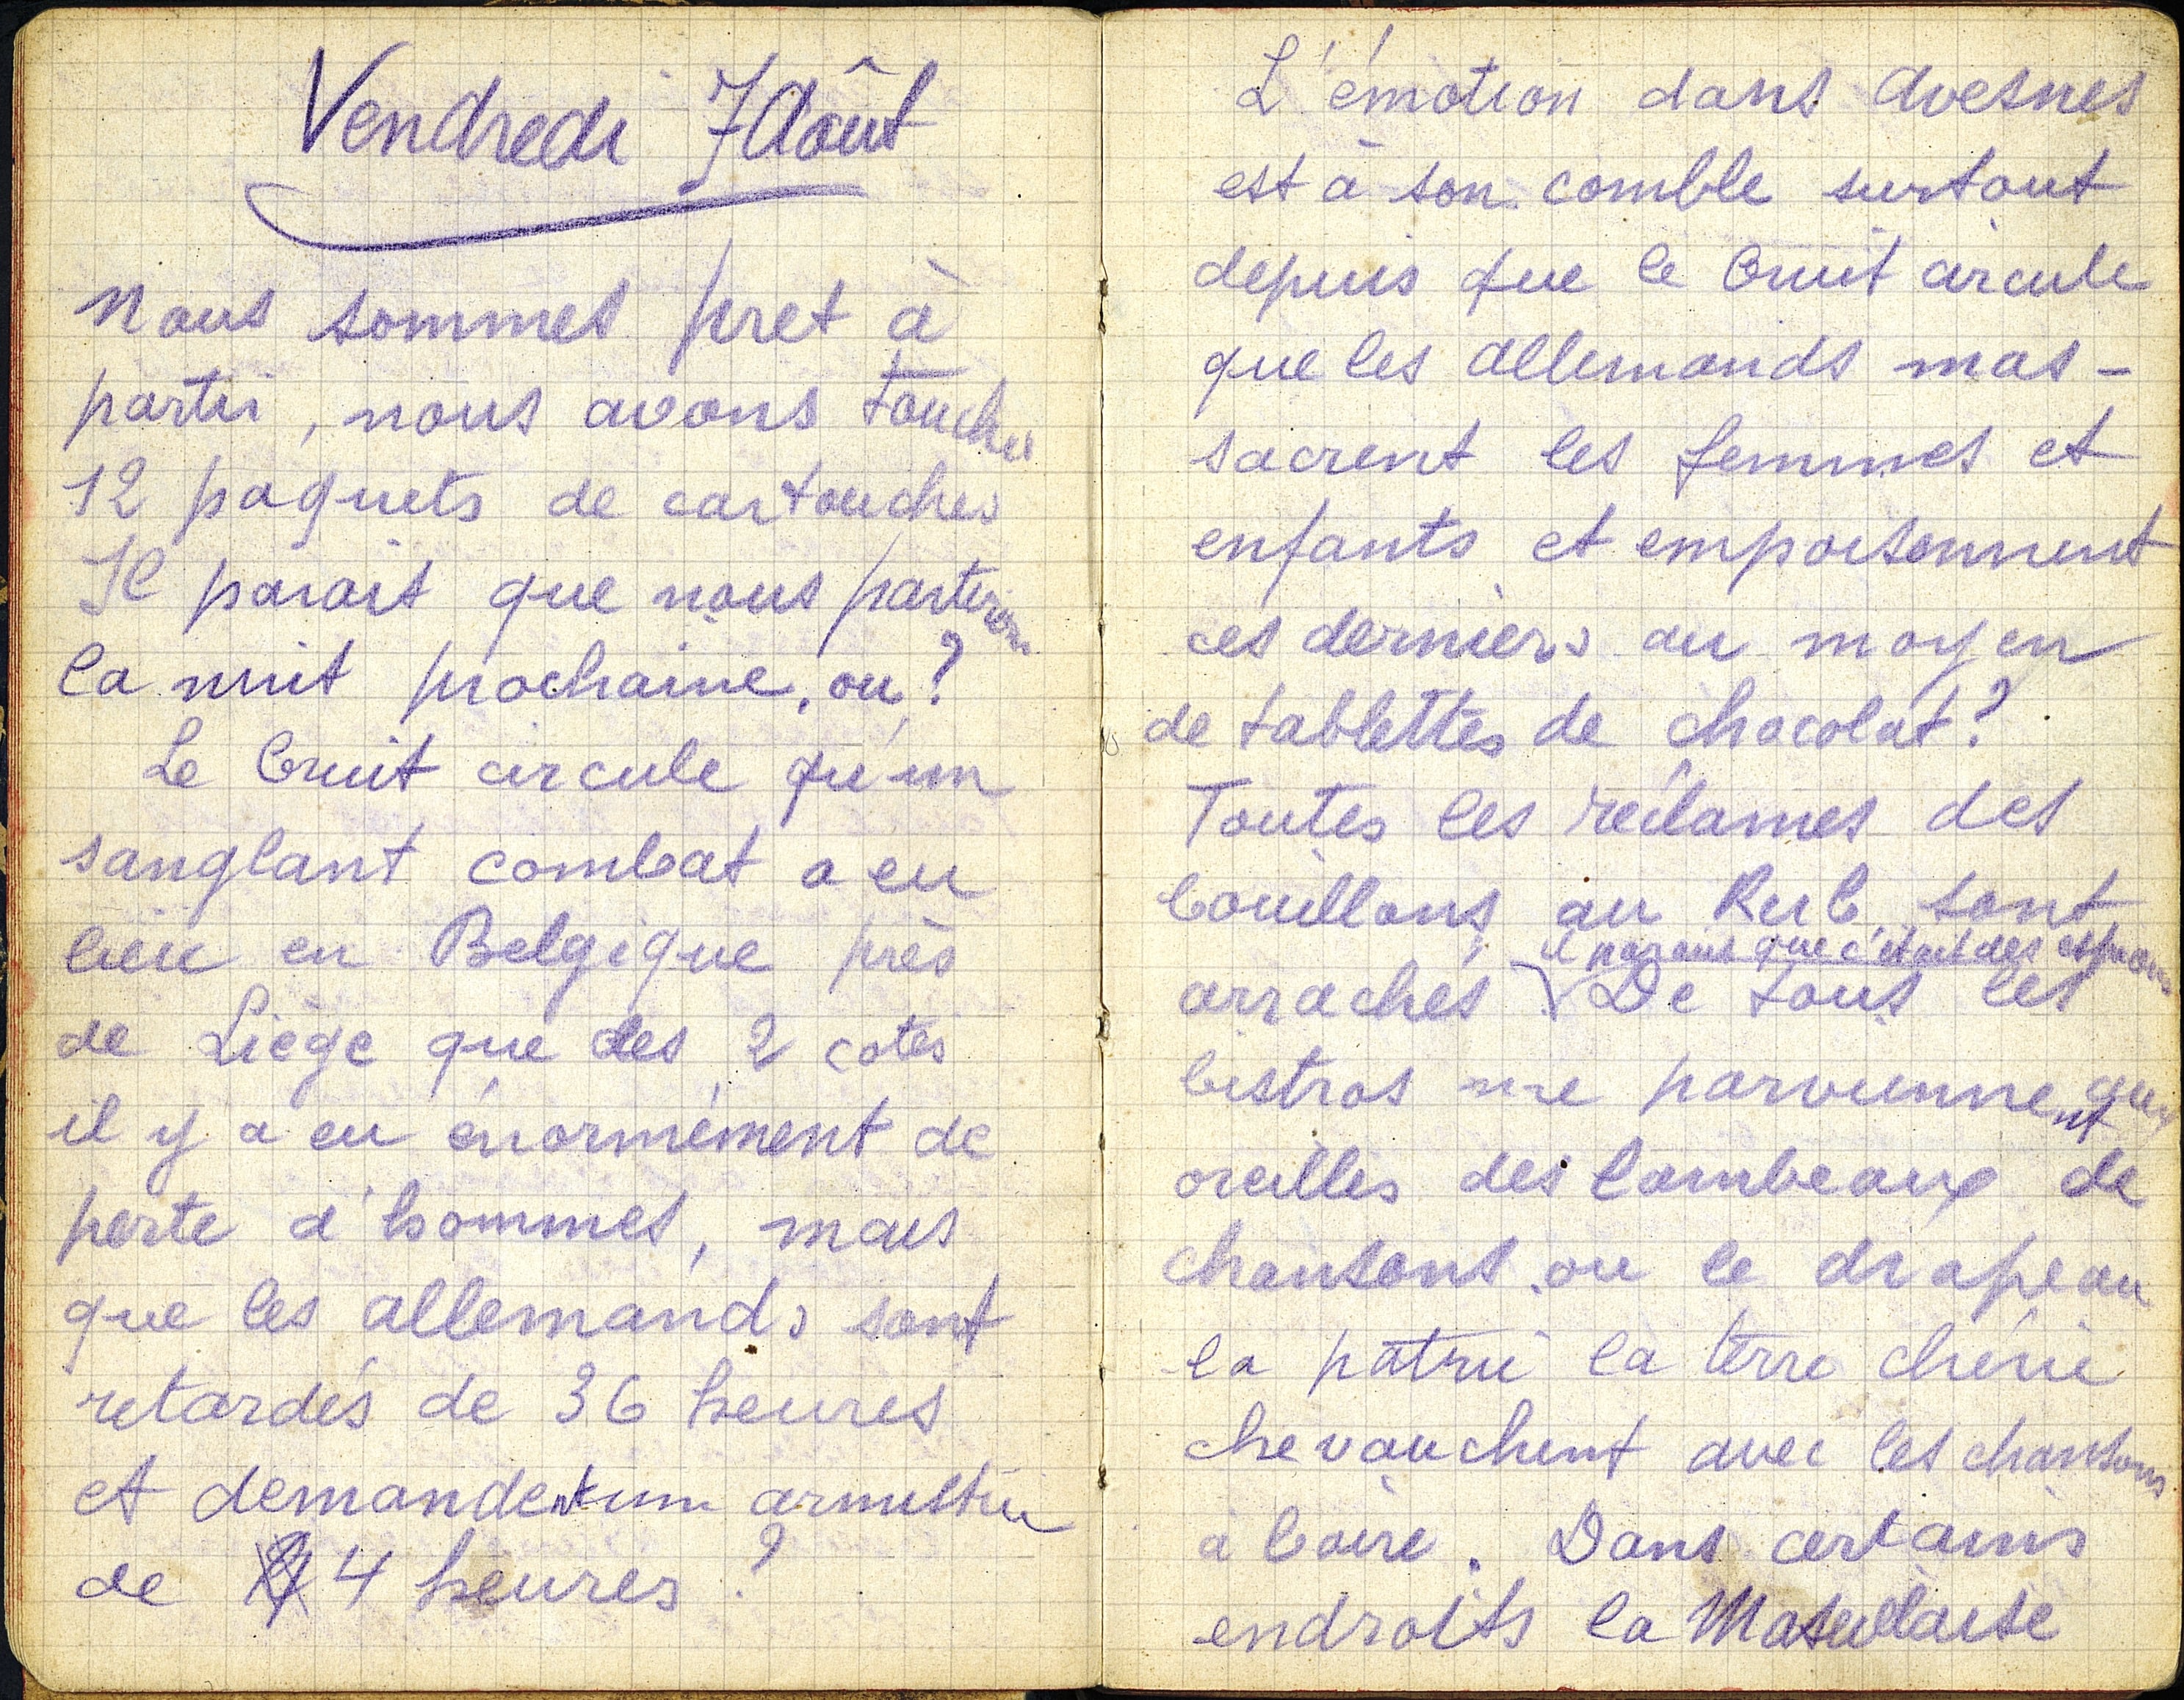 Vendredi 7 Août
Nous sommes pret à
partir, nous avons touchés
12 paquets de cartouches
Il parait que nous partirons
la nuit prochaine, ou ?
Le bruit circule qu'un
sanglant combat a eu
lieu en Belgique près
de Liège que des 2 cotés
il y a eu énormément de
perte d'hommes, mais
que les allemands sont
retardés de 36 heures
et demandent un armistice
de 4 heures ?
L'émotion dans Avesnes
est à son comble surtout
depuis que le bruit circule
que les allemands mas-
sacrent les femmes et
enfants et empoisonnent
ces derniers au moyen
de tablettes de chocolat ?
Toutes les réclames des
bouillons au Kub sont
il parait que c'était des espions
arrachés De tous les
bistros me parviennent aux
oreilles des lambeaux de
chansons ou le drapeau
la patrie la terre chérie
chevauchent avec les chansons
à boire. Dans certains
endroits la Maseillaise